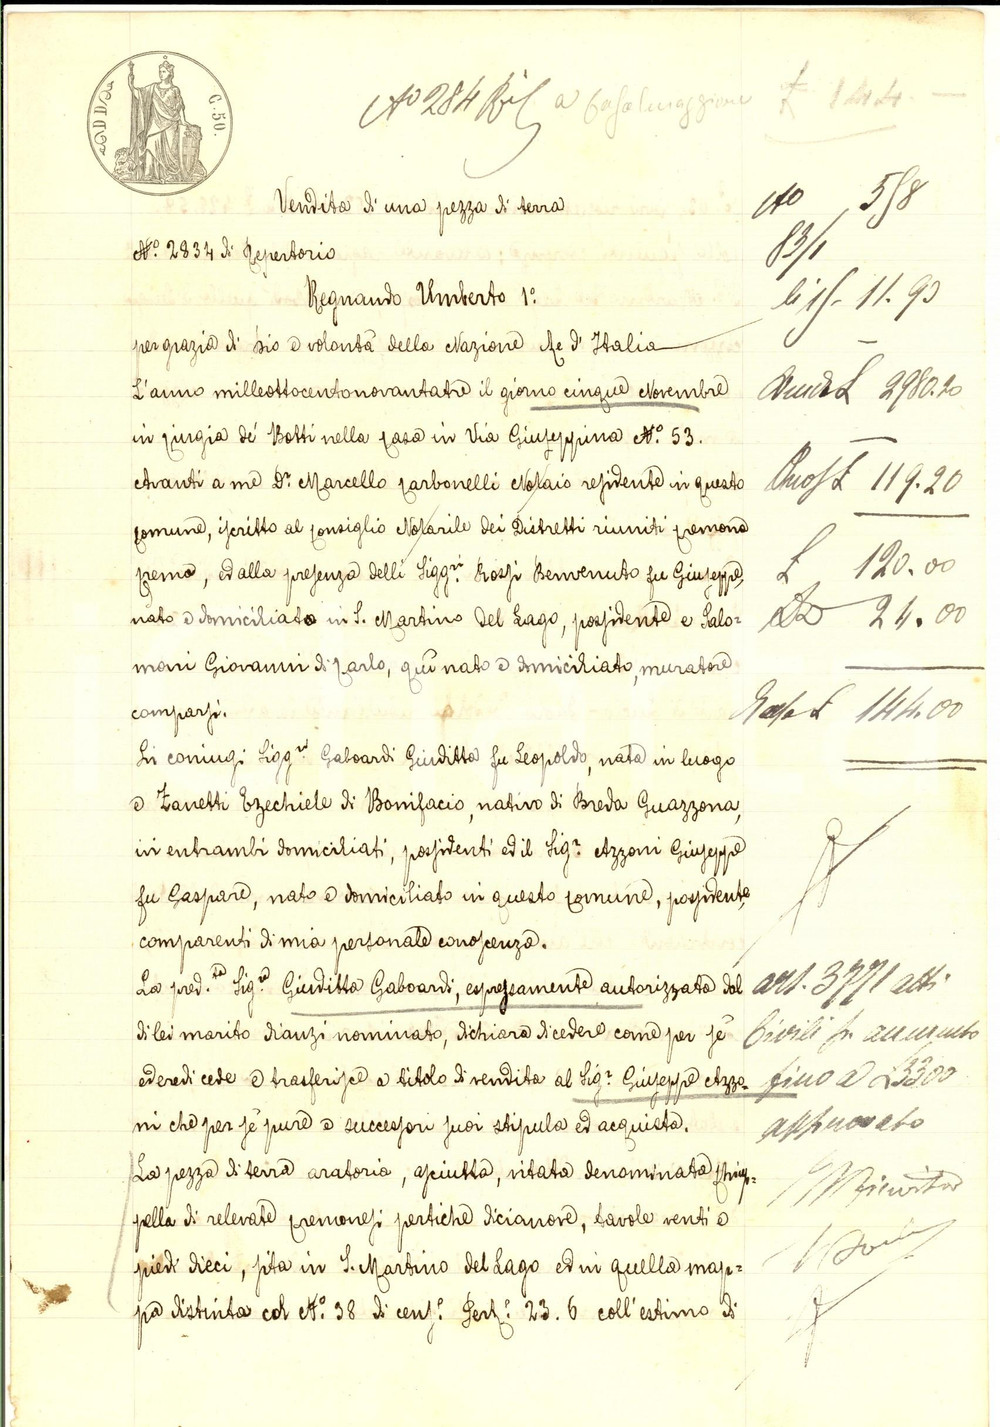 C. 50.
No 284 Rip a Casalmaggiore £ 144 —
Vendita di una pezza di terra
No. 2834 di Repertorio
Regnando Umberto 1o.
per grazia di Dio e volontà della Nazione Re d'Italia
L'anno milleottocentonovantatre il giorno cinque Novembre
in Cingia de' Botti nella casa in Via Giuseppina No. 53.
Avanti a me Dr. Marcello Carbonelli Notaio residente in questo
Comune, iscritto al Consiglio Notarile dei Distretti riuniti Cremona
Crema, ed alla presenza delli Siggri. Rossi Benvenuto fu Giuseppe,
nato e domiciliato in S. Martino del Lago, possidente e Salo-
moni Giovanni di Carlo, quì nato e domiciliato, muratore
comparsi.
Li coniugi Siggri Gaboardi Giuditta fu Leopoldo, nata in luogo
e Zanetti Ezechiele di Bonifacio, nativo di Breda Guazzona,
ivi entrambi domiciliati, possidenti ed il Sigr. Azzoni Giuseppe
fu Gaspare, nato e domiciliato in questo Comune, possidente,
comparenti di mia personale conoscenza.
La pred.ta Sigra Giuditta Gaboardi, espressamente autorizzata dal
di lei marito dianzi nominato, dichiara di cedere come per sè
ed eredi cede e trasferisce a titolo di vendita al Sigr. Giuseppe Azzo-
ni che per sè pure e successori suoi stipula ed acquista.
La pezza di terra aratoria, asciutta, vitata denominata
pella di relevate Cremonesi pertiche dicianove, tavole venti e
piedi dieci, sita in S. Martino del Lago ed in quella map-
pa distinta col No. 38 di cens. Pert. 23. 6 coll'estimo di
No 558
83/1
11. 93
£ 2980.20
£ 119.20
£ 120.00
24.00
£ 144.00
art. 3771 atti
Civili in aumento
fino a £ 3300
approvato